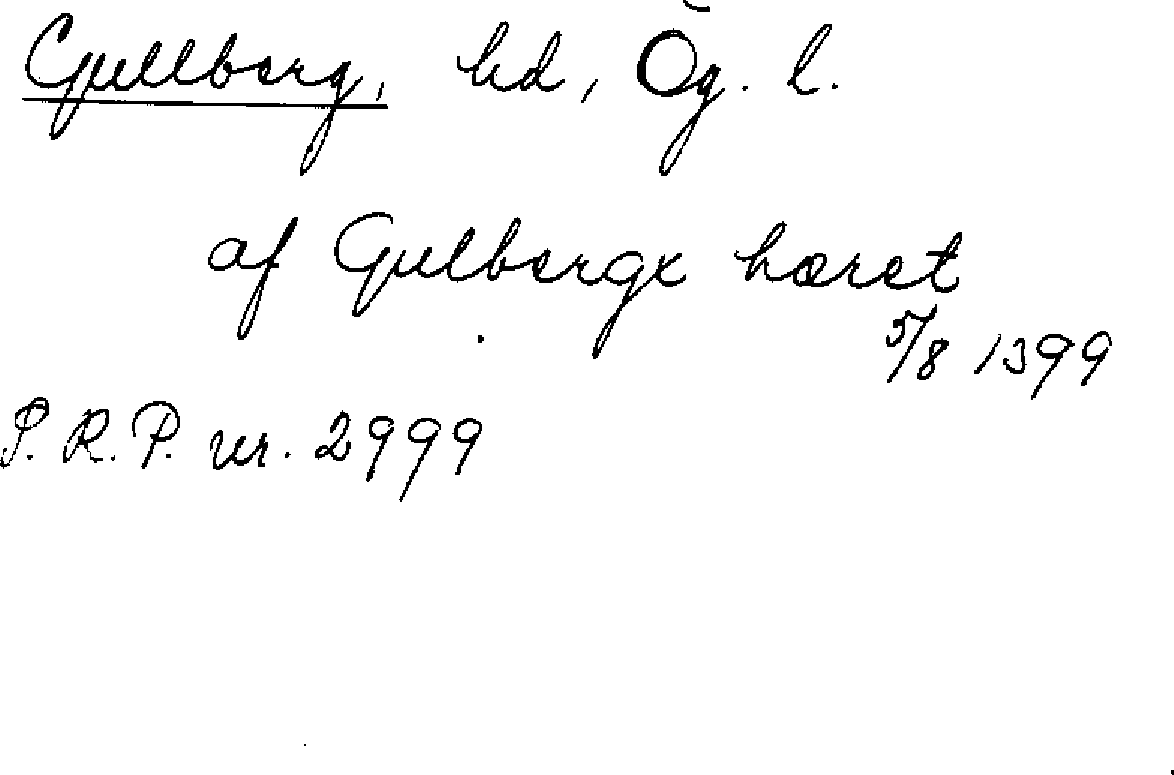 Gullberg, hd, Ög. l.
af Gulbergx hæret
5/8 1399
S.R.P. nr. 2999